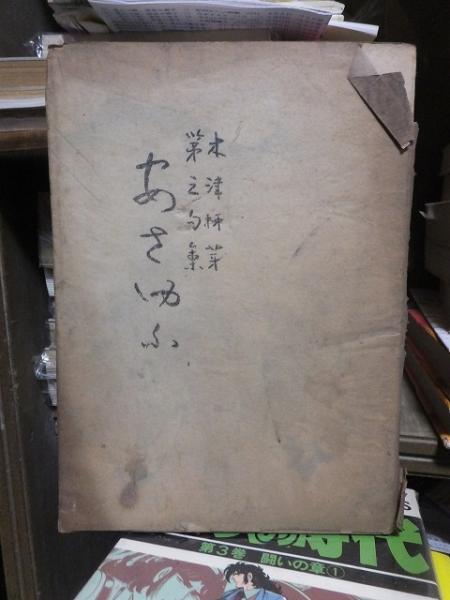 木津柳芽
第三句集
あさゆふ
の時代
第3巻 闘いの章①